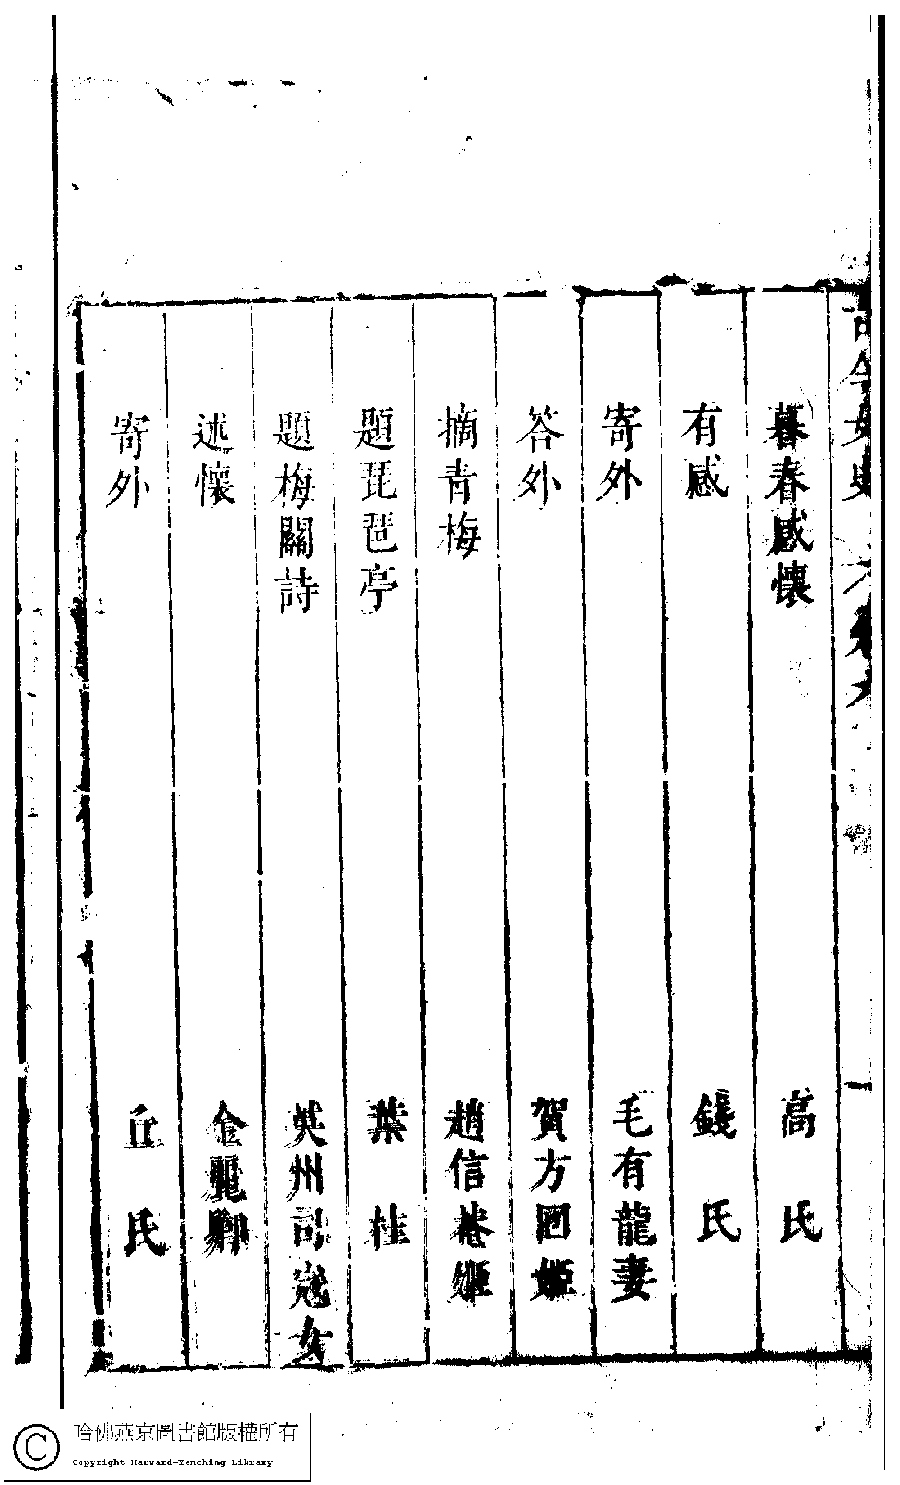 古今女史 六卷六
一
暮春感懷 高氏
有感 錢氏
寄外 毛有龍妻
答外 賀方回姬
摘青梅 趙信菴姬
題琵琶亭 葉桂
題梅關詩 英州司寇女
述懷 金麗卿
寄外 丘氏
哈佛燕京圖書館版權所有
Copyright Harvard-Yenching Library